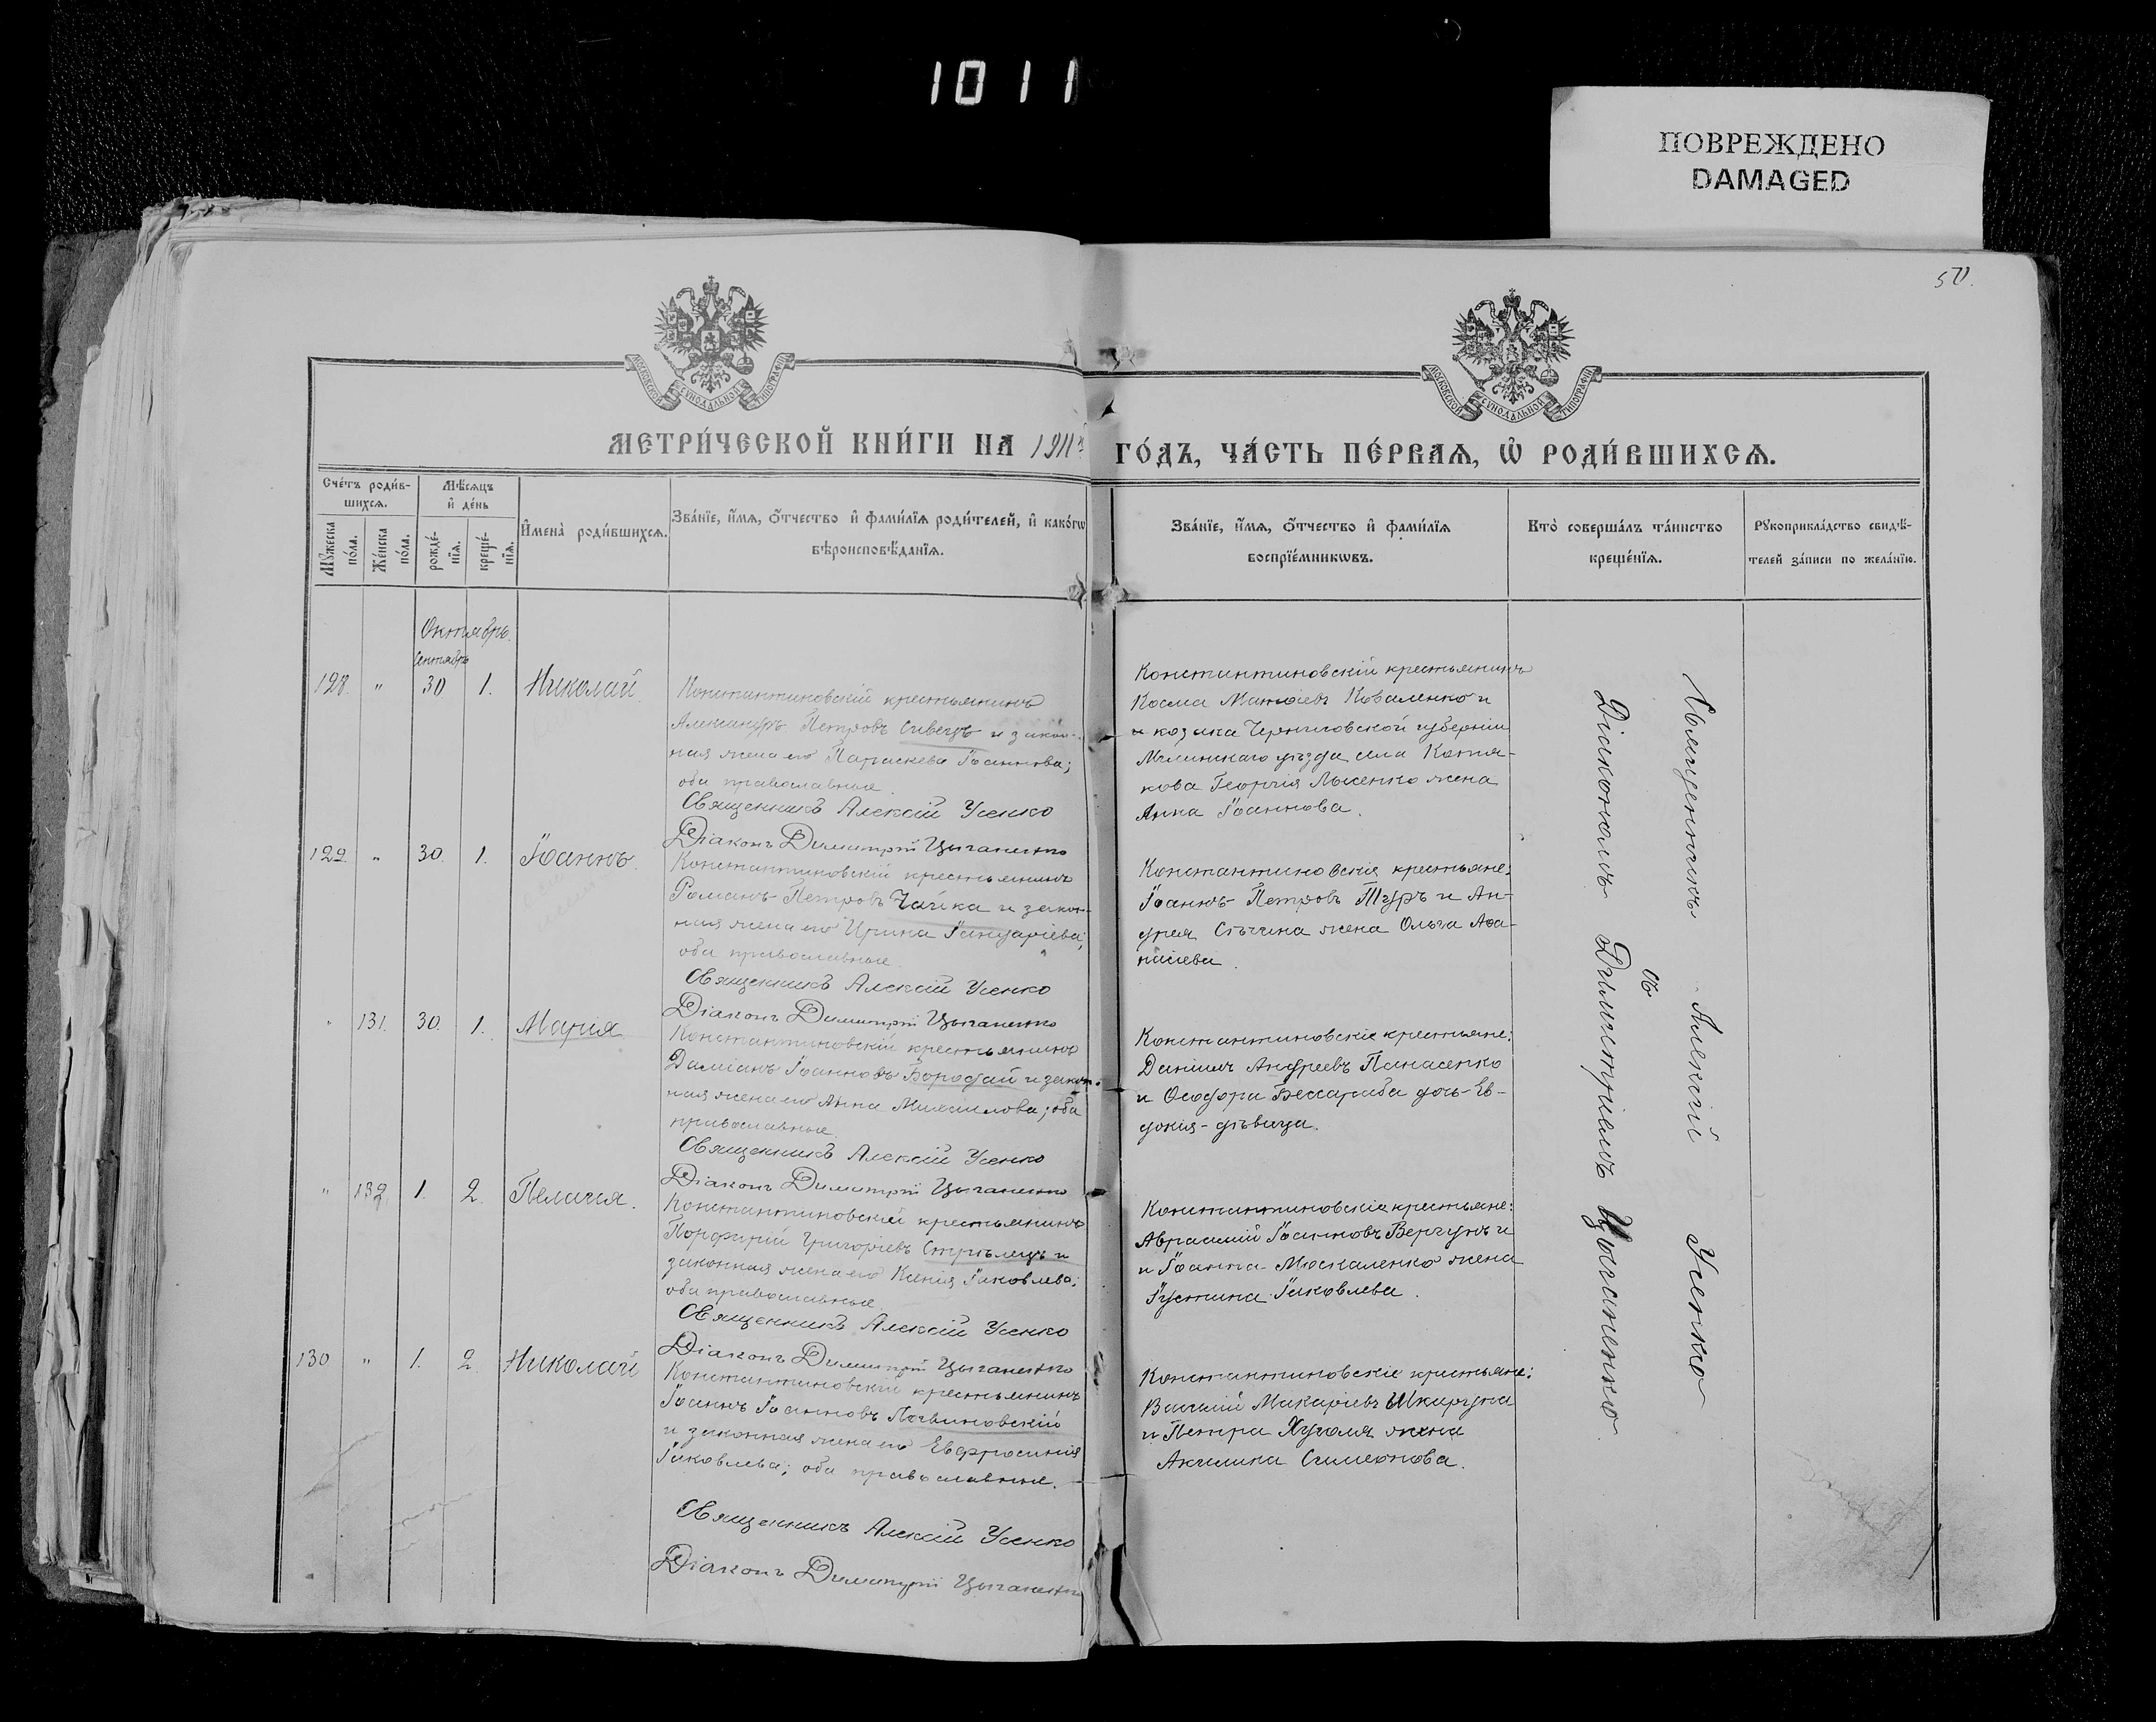 1011
ПОВРЕЖДЕНО
DAMAGED
50.
МОСКОВСКОЙ СѴНОДАЛЬНОЙ ТИПОГРАФІИ
МОСКОВСКОЙ СѴНОДАЛЬНОЙ ТИПОГРАФІИ
МЕТРИ́ЧЕСКОЙ КНИ́ГИ НА 1911й ГО́ДЪ, ЧА́СТЬ ПЕ́РВАѦ, Ѡ҆ РОДИ́ВШИХСѦ.
Сче́тъ роди́в-
шихсѧ.
Мꙋжеска по́ла.
Же́нска по́ла.
Мѣ́сѧцъ
и҆ де́нь
рожде́-
нїѧ.
креще́-
нїѧ.
И҆мена̀ роди́вшихсѧ.
Зва́нїе, и҆́мѧ, ѻ҆́тчество и҆ фами́лїѧ роди́телей, и҆ како́гѡ
вѣроисповѣ́данїѧ.
Зва́нїе, и҆́мѧ, ѻ҆́тчество и҆ фами́лїѧ
воспрїе́мникѡвъ.
Кто̀ соверша́лъ та́инство
креще́нїѧ.
Рꙋкоприкла́дство свидѣ́-
телей за́писи по жела́нїю.
Октябрь.
Сентябрь
128. " 30 1. Николай
Константиновскій крестьянинъ
Александръ Петровъ Сивецъ и закон-
ная жена его Параскева Іоаннова;
оба православные.
Священникъ Алексій Усенко
Діаконъ Димитрій Цыганенко
Константиновскій крестьянинъ
Косма Матѳіевъ Коваленко и
и козака Черниговской губерніи
Мглинскаго уѣзда села Котля-
кова Георгія Лысенко жена
Анна Іоаннова.
129. " 30. 1. Іоаннъ.
Константиновскій крестьянинъ
Романъ Петровъ Чайка и закон-
ная жена его Ирина Іануаріева;
оба православные.
Священникъ Алексій Усенко
Діаконъ Димитрій Цыганенко
Константиновскія крестьяне:
Іоаннъ Петровъ Туръ и Ан-
дрея жена Ольга Аѳа-
насіева.
" 131. 30. 1. Марія
Константиновскій крестьянинъ
Даміанъ Іоанновъ Бородай и закон-
ная жена его Анна Михаилова; оба
православные.
Священникъ Алексій Усенко
Діаконъ Димитрій Цыганенко
Константиновскіе крестьяне:
Даніилъ Андреевъ Панасенко
и Ѳеодора Бессараба дочь Ев-
докія - дѣвица.
" 132. 1. 2. Пелагія.
Константиновскій крестьянинъ
Порфирій Григоріевъ Стрѣлецъ и
законная жена его Ксенія Іаковлева;
оба православные.
Священникъ Алексій Усенко
Діаконъ Димитрій Цыганенко
Константиновскіе крестьяне:
Авраамій Іоанновъ Вергунъ и
и Іоанна Москаленко жена
Іустина Іаковлева.
130 " 1. 2. Николай
Константиновскій крестьянинъ
Іоаннъ Іоанновъ Логвиновскій
и законная жена его Евфросинія
Іаковлева; оба православные.
Священникъ Алексій Усенко
Діаконъ Димитрій Цыганенко
Константиновскіе крестьяне:
Василій Макаріевъ Шкаргуна
и Петра жена
Акилина Симеонова.
Священникъ Алексій Усенко
съ
Діакономъ Димитріемъ Цыганенко